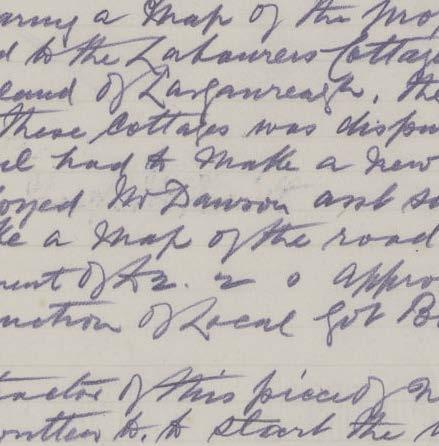 aring a Map of the pro
d to the Labourers Cottage
land of Larganreagh, the
these Cottages was dispu
cil had to Make a new
loyed Mr Dawson asst su
ke a Map of the road
ment of £2. 2 0 appro
nction of Local Govt B
tractor of this piece of
written to. to start the